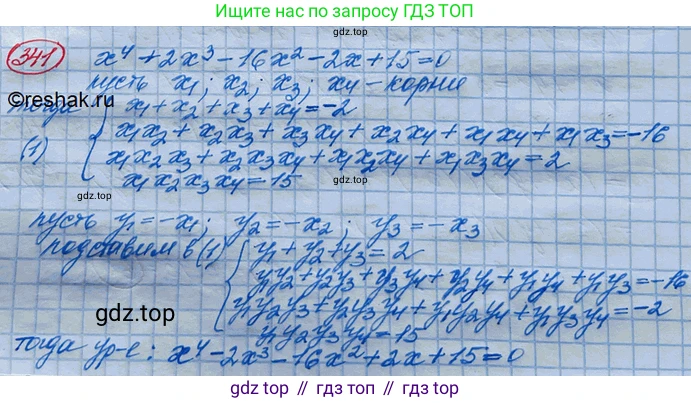 Ищите нас на поиске ГДЗ ТОП
341 x⁴ + 2x³ - 16x² - 2x + 15 = 0
gdz.top
пусть x₁; x₂; x₃; x₄ - корние
©reshak.ru
тогда x₁ + x₂ + x₃ + x₄ = -2
(1) x₁x₂ + x₂x₃ + x₃x₄ + x₂x₄ + x₁x₄ + x₁x₃ = -16
x₁x₂x₃ + x₂x₃x₄ + x₁x₂x₄ + x₁x₃x₄ = 2
x₁x₂x₃x₄ = 15
gdz.top
пусть y₁ = -x₁; y₂ = -x₂; y₃ = -x₃
подставим в (1) y₁ + y₂ + y₃ = 2
y₁y₂ + y₂y₃ + y₃y₄ + y₂y₄ + y₁y₄ + y₁y₃ = -16
gdz.top
y₁y₂y₃ + y₂y₃y₄ + y₁y₂y₄ + y₁y₃y₄ = -2
y₁y₂y₃y₄ = 15
gdz.top
тогда ур-е: x⁴ - 2x³ - 16x² + 2x + 15 = 0
gdz.top | гдз топ | gdz.top